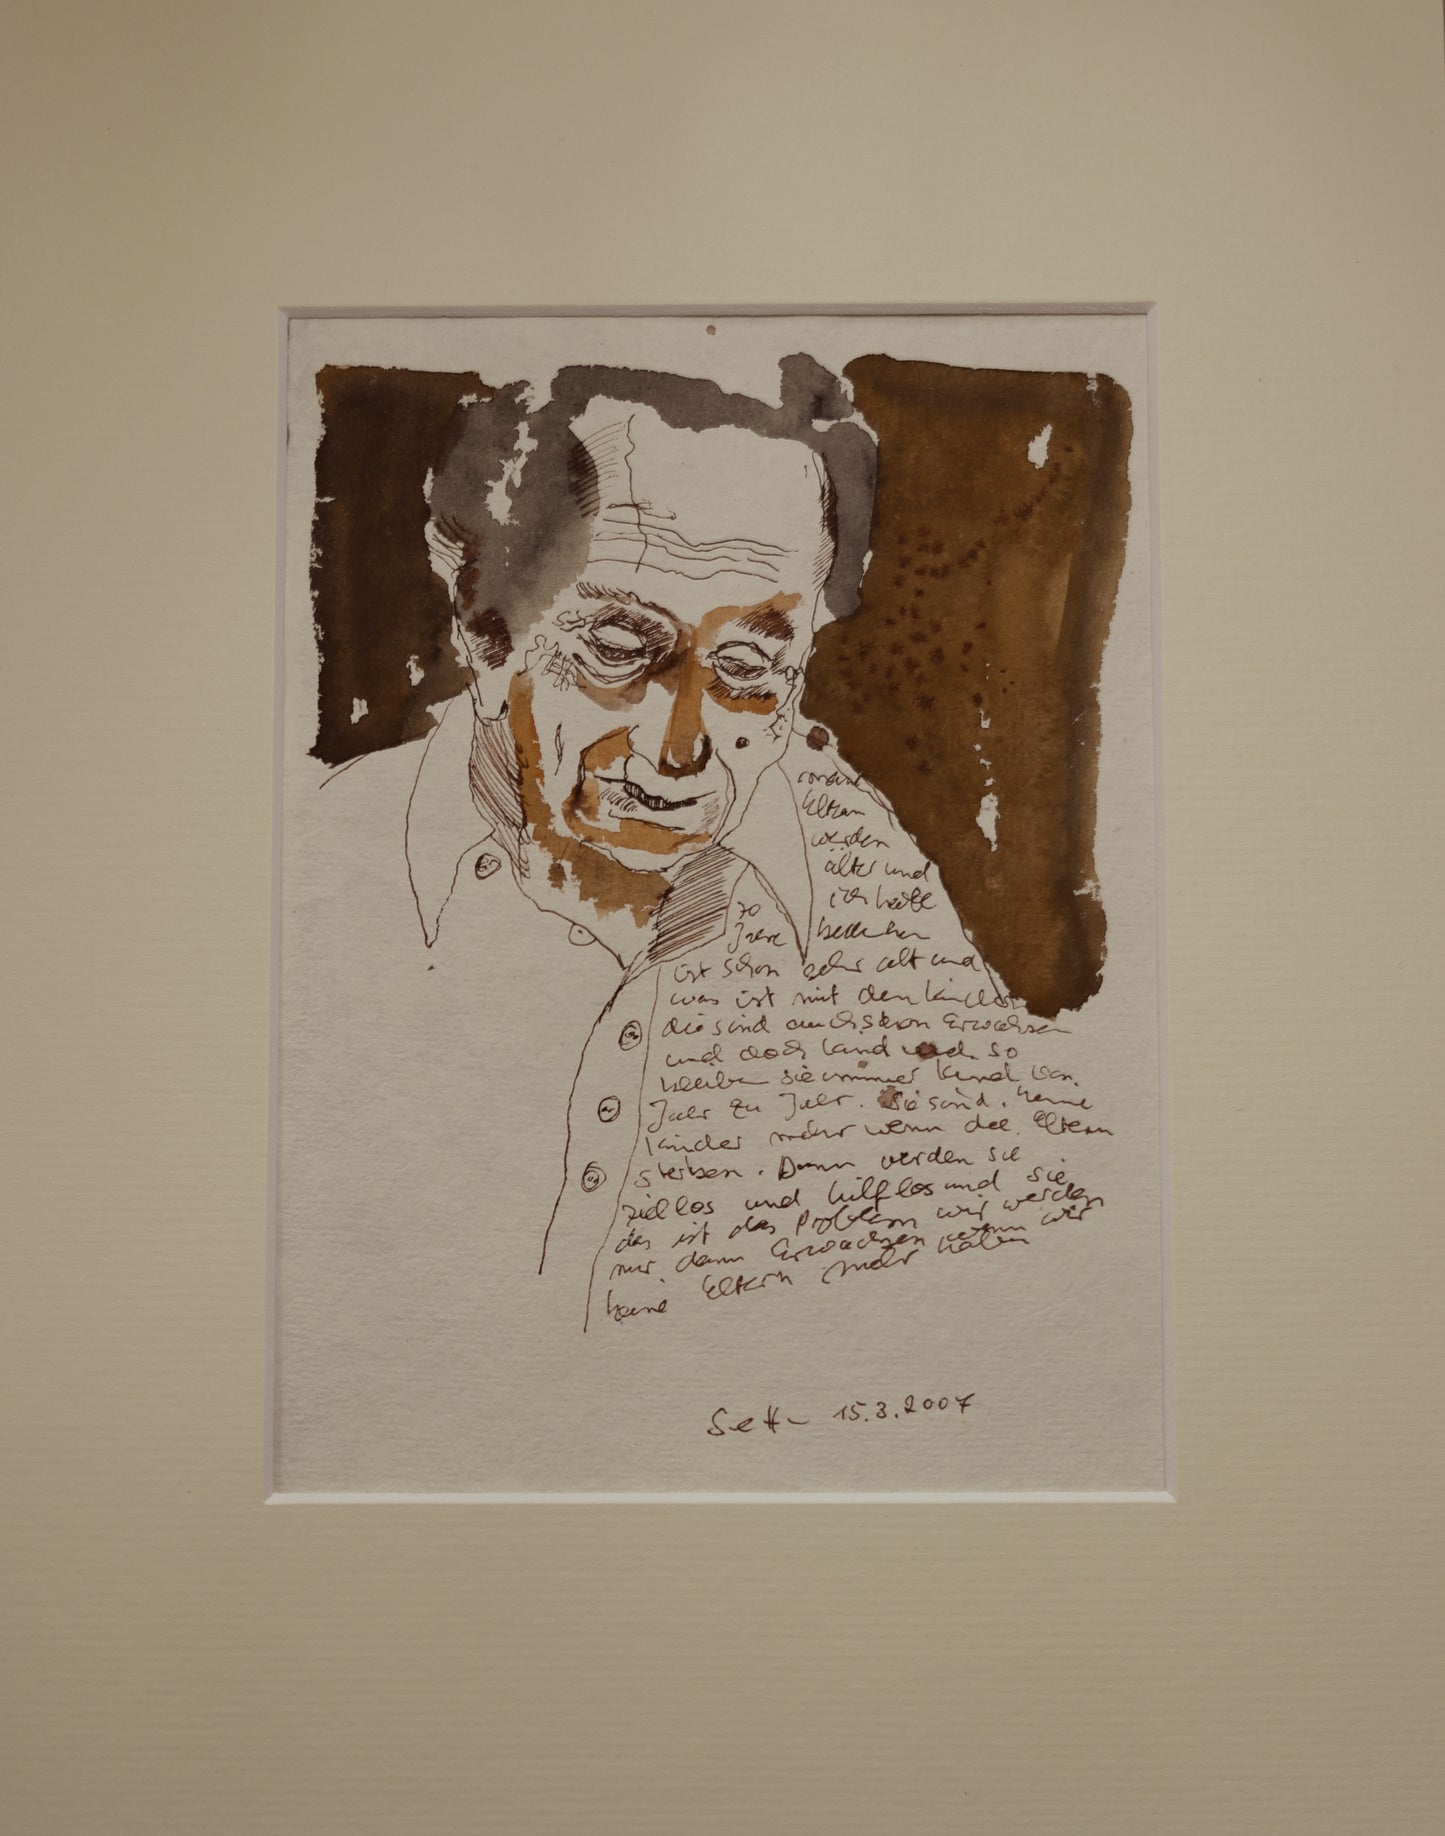 meine
Eltern
werden
älter und
ich heute
70
Jahre
ist schon sehr alt und
was ist mit den Kinder
die sind auch schon Erwachsen
und doch Kind und so
bleiben sie immer Kind von
Jahr zu Jahr. Sie sind. keine
Kinder mehr wenn die. Eltern
sterben. Dann werden sie
ziellos und hilflos und sie
das ist das Problem wir werden
nur dann Erwachsen wenn wir
keine Eltern mehr haben
15.3.2007